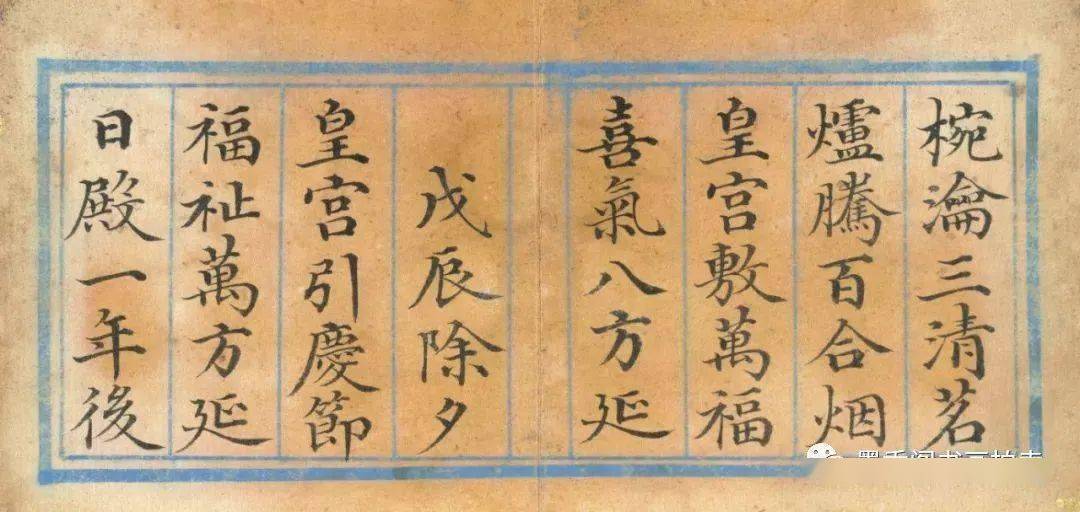 椀瀹三清茗
爐騰百合烟
皇宮敷萬福
喜氣八方延
戊辰除夕
皇宮引慶節
福祉萬方延
日殿一年後